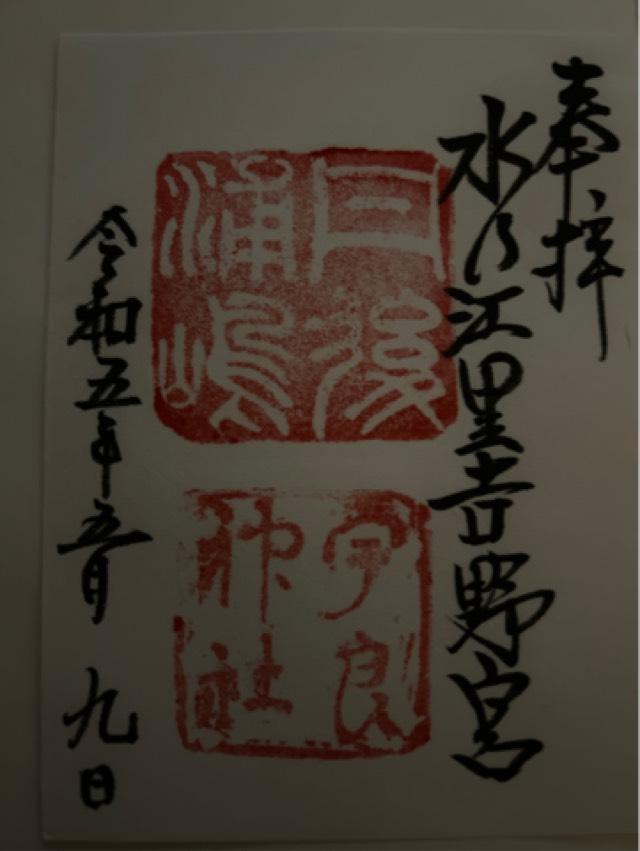 奉拝
水乃江里吉野宮
丹後
浦嶋
宇良
神社
令和五年五月九日